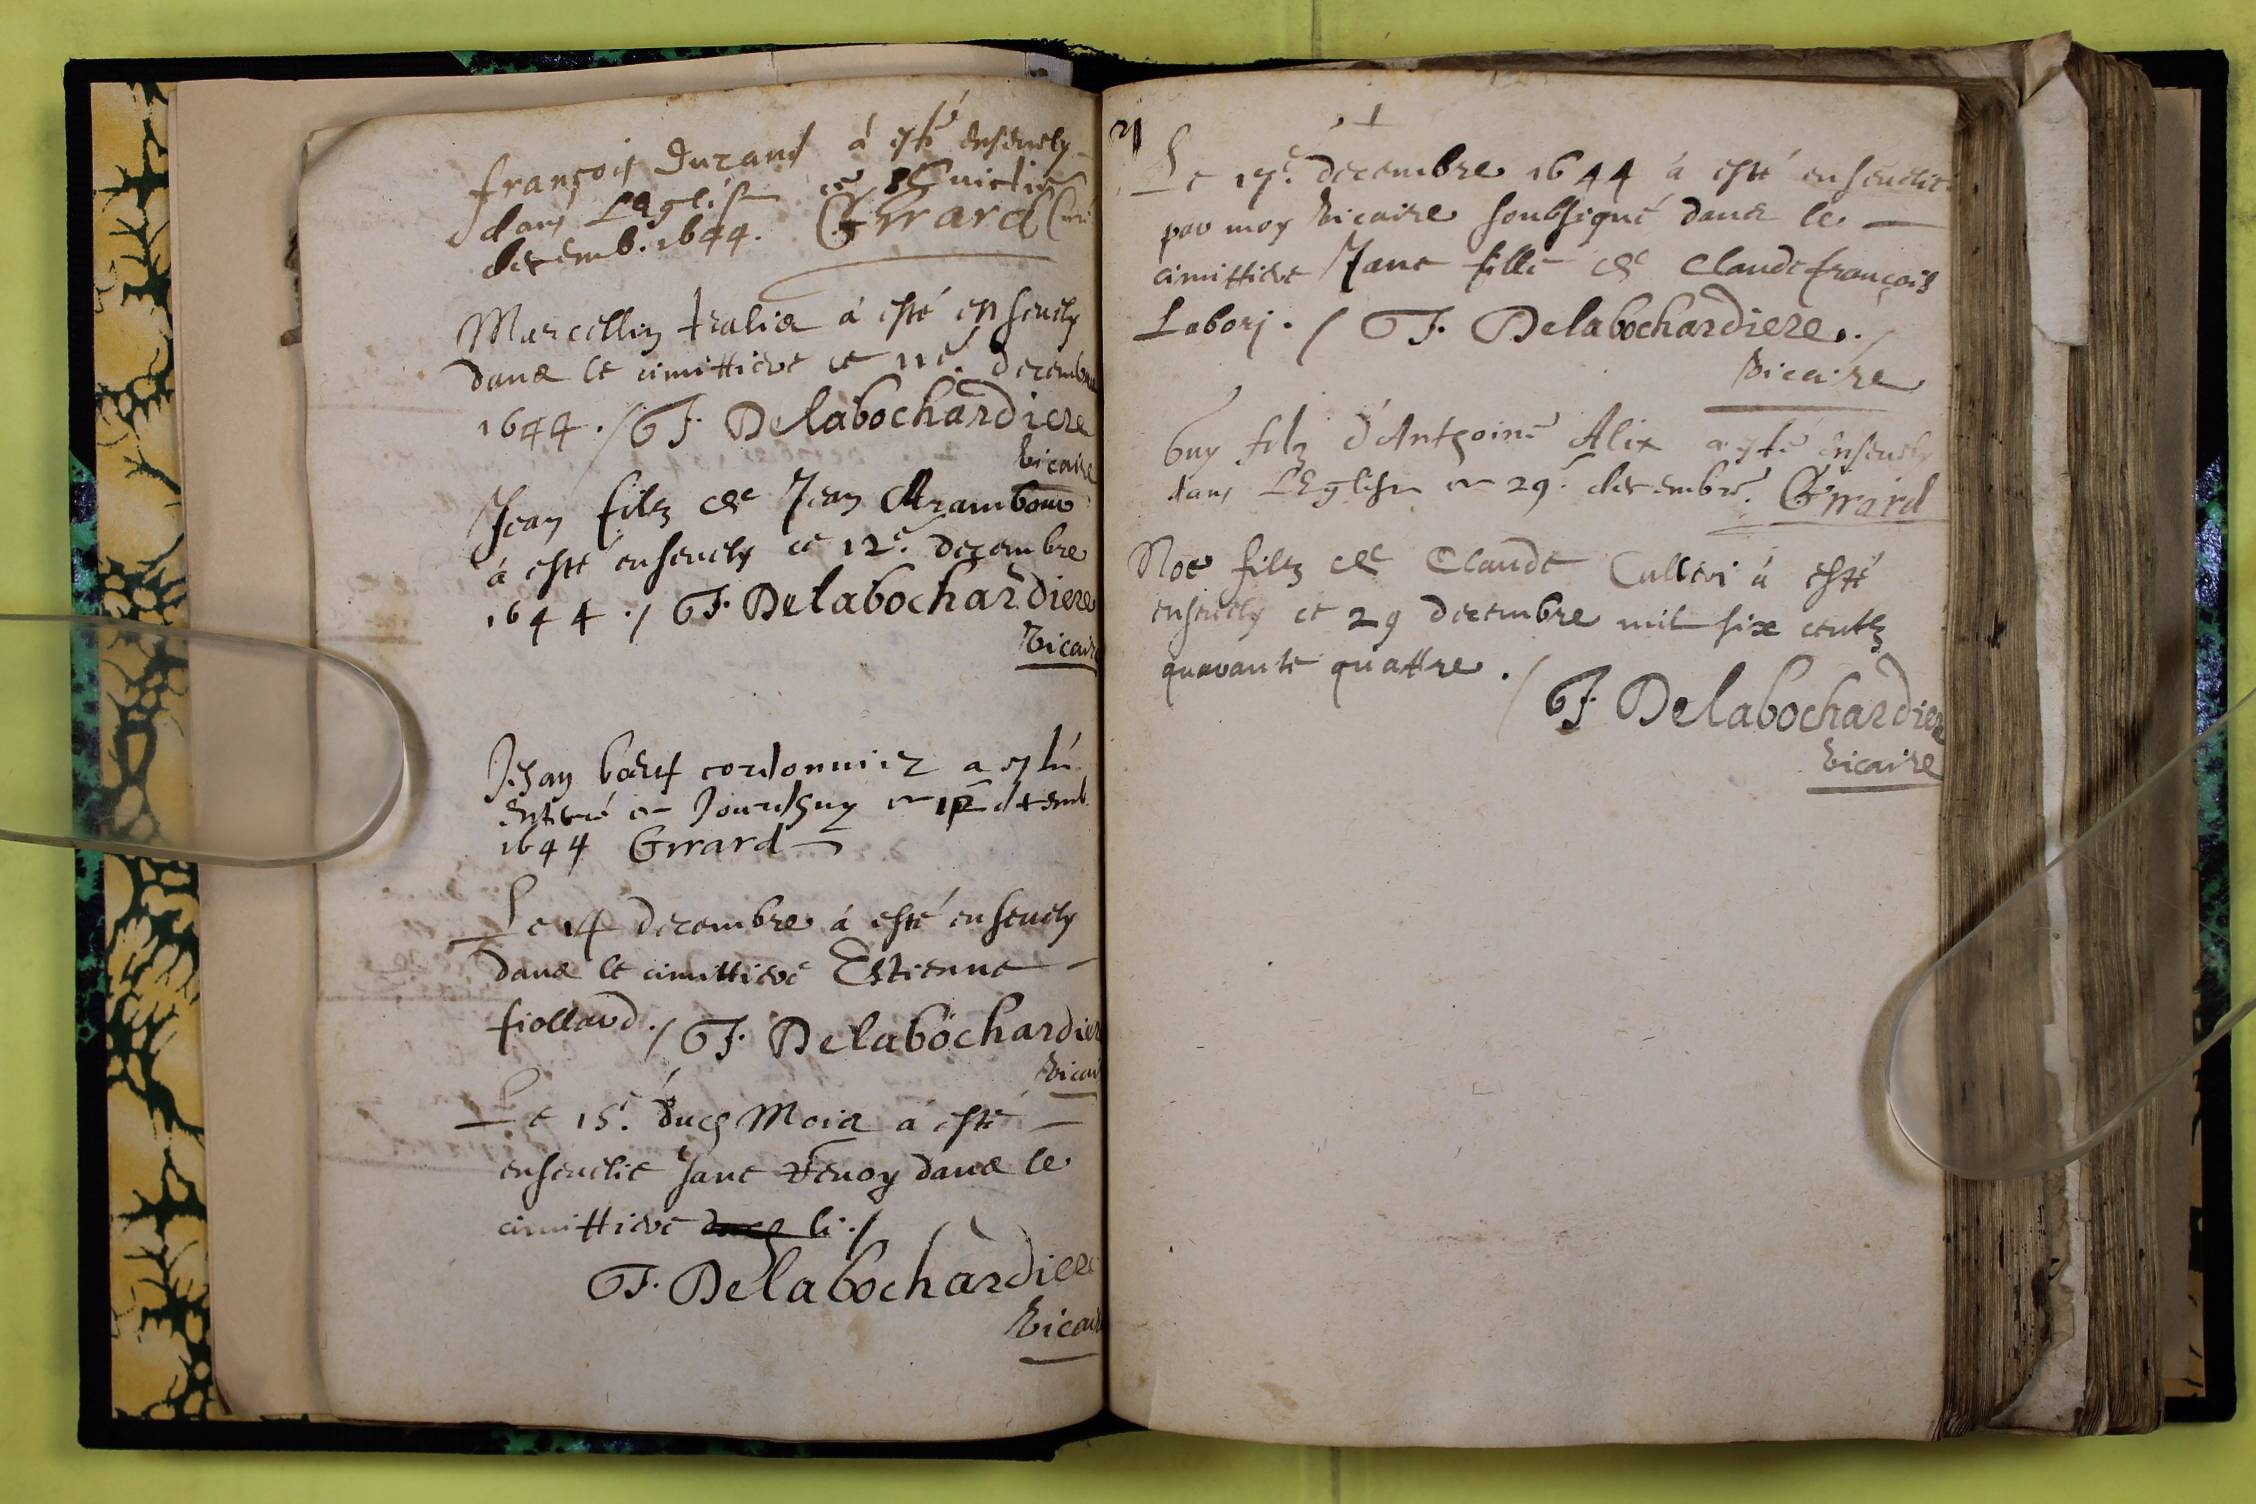 françois Durand à esté ensevely
dans L'Eglise ce
decemb. 1644. Girard Curé
Marcellin tralis à esté ensevely
dans le cimittiere ce 11e. decembre
1644 ./ G J. Delabochardiere
Vicaire
Jean filz de Jean
à esté ensevely ce 12e. decembre
1644 ./ G J. Delabochardiere
Vicaire
Jehan cordonnier a esté
enterré ce Jourdhuy ce 12 decemb.
1644 Girard
Le 14 decembre à esté ensevely
dans le cimittiere Estienne
fiollard ./ G J. Delabochardiere
Vicai
Le 15e. dud Mois a esté
ensevelie Jane dans le
cimittiere ./
G J. Delabochardiere
Vicaire
Le 17e. decembre 1644 à esté ensevelie
par moy Vicaire soubsigné dans le
cimittiere Jane fille de Claude françois
Labori ./ G J. Delabochardiere ./
Vicaire
Guy filz d'Anthoine Alix a esté ensevely
dans L'Eglise ce 29e. decembre. Girard
Noe filz de Claude Culleri à esté
ensevely ce 29 decembre mil six centz
quarante quattre ./
G J. Delabochardiere
Vicaire